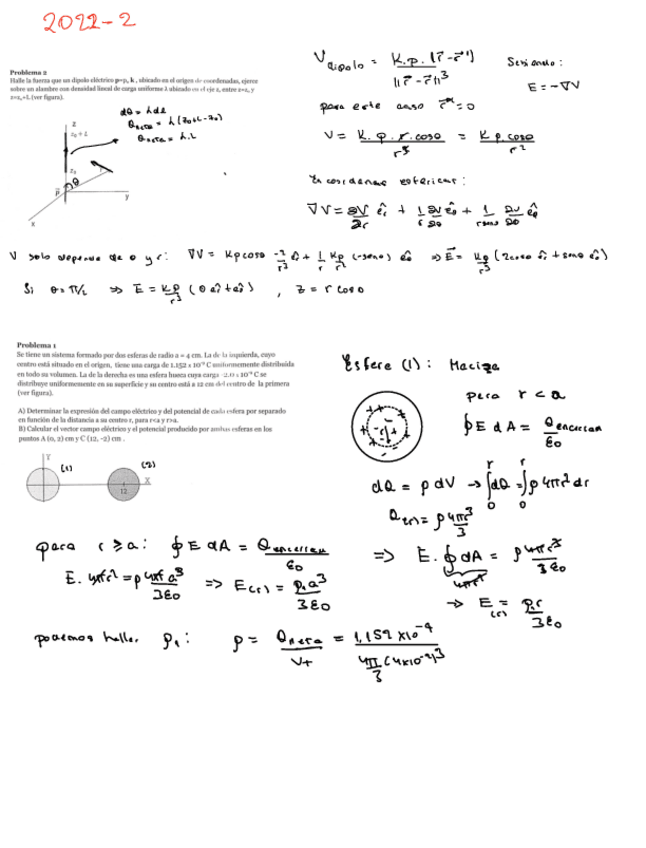 2022-2
Problema 2
Halle la fuerza que un dipolo eléctrico p=p₀ k , ubicado en el origen de coordenadas, ejerce
sobre un alambre con densidad lineal de carga uniforme λ ubicado en el eje z, entre z=z₀ y
z=z₀+L (ver figura).
dQ = λdz
Qneta = λ(z₀+L-z₀)
Qneta = λ.L
z
z₀ + L
z₀
θ
r
p
y
x
Vdipolo = K.p.(r⃗-r⃗')
||r⃗-r⃗'||³
Sabiendo:
E = -∇V
para este caso r⃗'=0
V = K.p.r.cosθ = K p cosθ
r³ r²
En coordenadas esféricas:
∇V = ∂V/∂r ê + 1/r ∂V/∂θ ê + 1/rsenθ ∂V/∂θ ê
V solo depende de θ y r: ∇V = Kp cosθ -2/r³ r̂ + 1/r Kp/r² (-senθ) ê ⇒ E⃗ = Kp/r³ (2cosθ r̂ + senθ ê)
Si θ=π/2 ⇒ E⃗ = Kp/r³ (0 + ) , z = r cosθ
Problema 1
Se tiene un sistema formado por dos esferas de radio a = 4 cm. La de la izquierda, cuyo
centro está situado en el origen, tiene una carga de 1.152 x 10⁻⁹ C uniformemente distribuida
en todo su volumen. La de la derecha es una esfera hueca cuya carga -2.0 x 10⁻⁹ C se
distribuye uniformemente en su superficie y su centro está a 12 cm del centro de la primera
(ver figura).
A) Determinar la expresión del campo eléctrico y del potencial de cada esfera por separado
en función de la distancia a su centro r, para r<a y r>a.
B) Calcular el vector campo eléctrico y el potencial producido por ambas esferas en los
puntos A (0, 2) cm y C (12, -2) cm .
Y
(1)
(2)
X
12
Esfera (1): Maciza
para r < a
∮E dA = Qencerran
ε₀
dQ = ρ dV → ∫dQ = ∫ρ4πr²dr
Q(r) = ρ 4πr³
3
⇒ E.∮dA = ρ4πr³
3ε₀
4πr²
→ E(r) = ρ₁r
3ε₀
para r ⩾ a: ∮E dA = Qencerran
ε₀
E. 4πr² = ρ4π a³ ⇒ E(r) = ρ₁a³
3ε₀ 3ε₀
podemos hallar ρ₁: ρ = Qneta = 1,152 x10⁻⁹
V+ 4π/3 (4x10⁻²)³